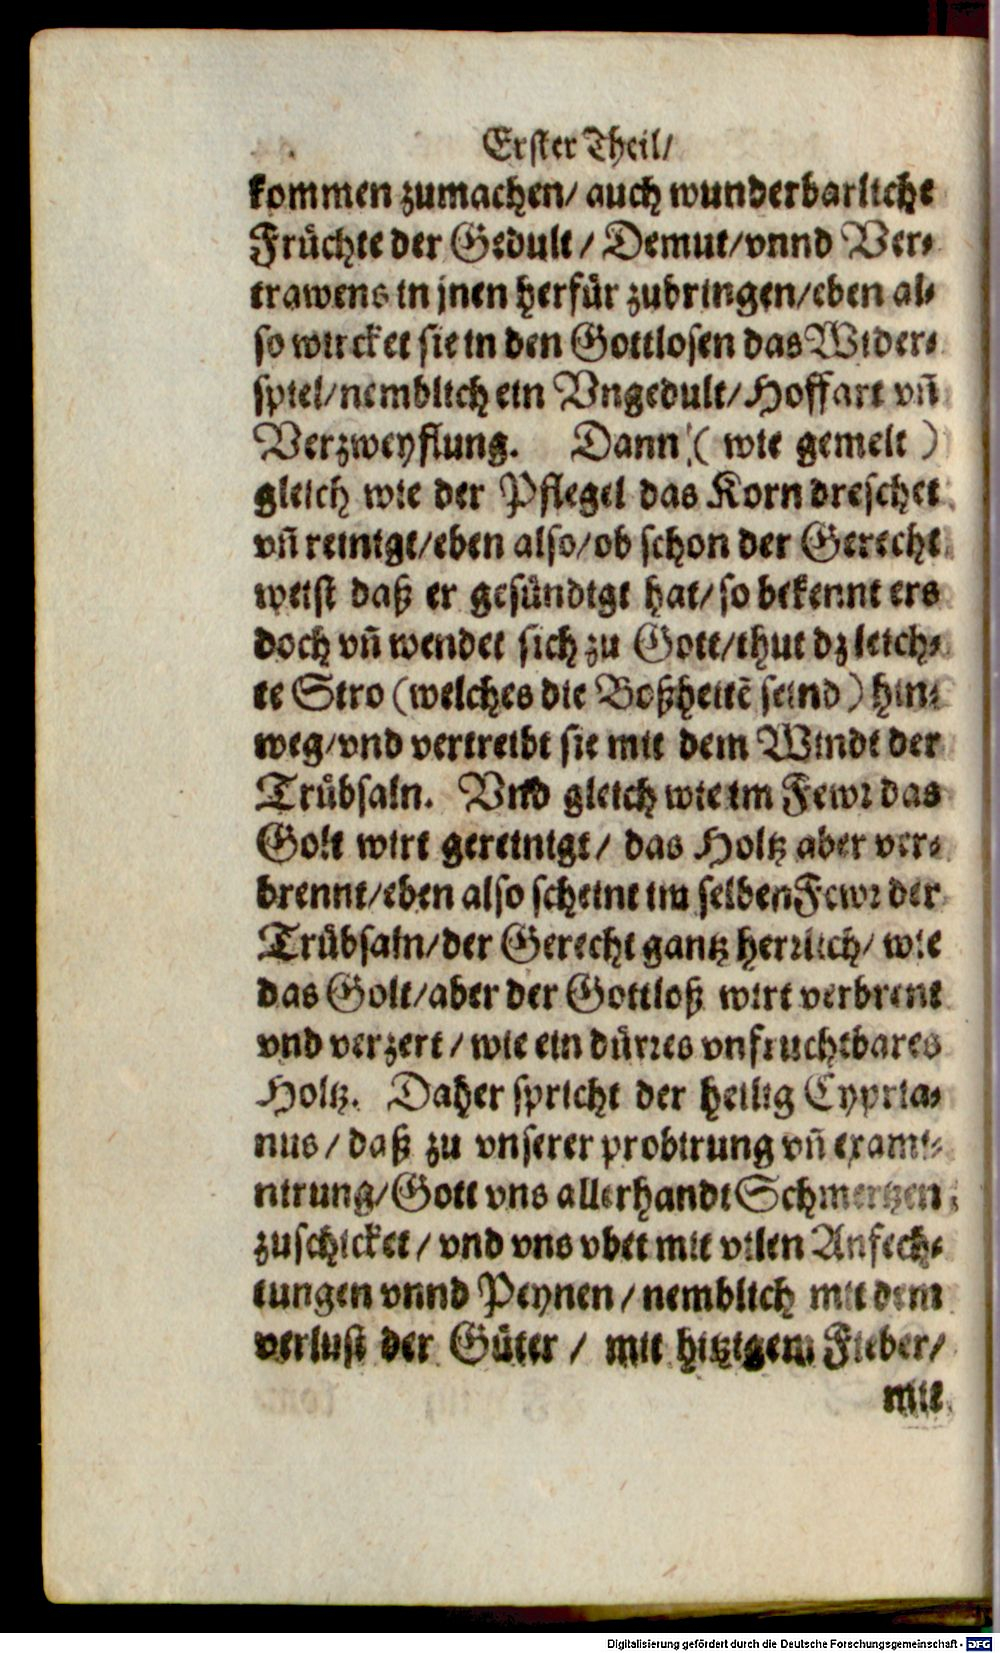 Erster Theil/
kommen zumachen/ auch wunderbarliche
Früchte der Gedult / Demut/vnnd Ver-
trawens in jnen herfür zubringen/eben al-
so wircket sie in den Gottlosen das Wider-
spiel/nemblich ein Vngedult/Hoffart vñ
Verzweyflung. Dann (wie gemelt)
gleich wie der Pflegel das Korn dreschet
vñ reinigt/eben also/ob schon der Gerecht
weist daß er gesündigt hat/so bekennt ers
doch vñ wendet sich zu Gott/thut dz leich-
te Stro (welches die Boßheitē seind) hin-
weg/vnd vertreibt sie mit dem Windt der
Trübsaln. Vnd gleich wie im Fewr das
Golt wirt gereinigt/ das Holtz aber ver-
brennt/eben also scheint im selben Fewr der
Trübsaln/der Gerecht gantz herrlich/ wie
das Golt/aber der Gottloß wirt verbrent
vnd verzert/wie ein dürres vnfruchtbares
Holtz. Daher spricht der heilig Cypria-
nus/daß zu vnserer probirung vñ exami-
nirung/Gott vns allerhandt Schmertzen
zuschicket/vnd vns vbet mit vilen Anfech-
tungen vnnd Peynen/nemblich mit dem
verlust der Güter / mit hitzigem Fieber/
mit
Digitalisierung gefördert durch die Deutsche Forschungsgemeinschaft - DFG